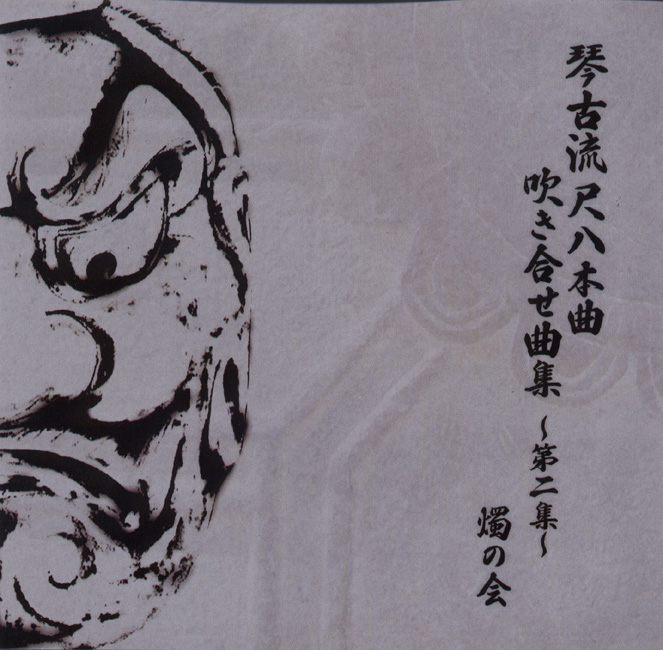 琴古流尺八本曲
吹き合せ曲集 ~第二集~
燭の会